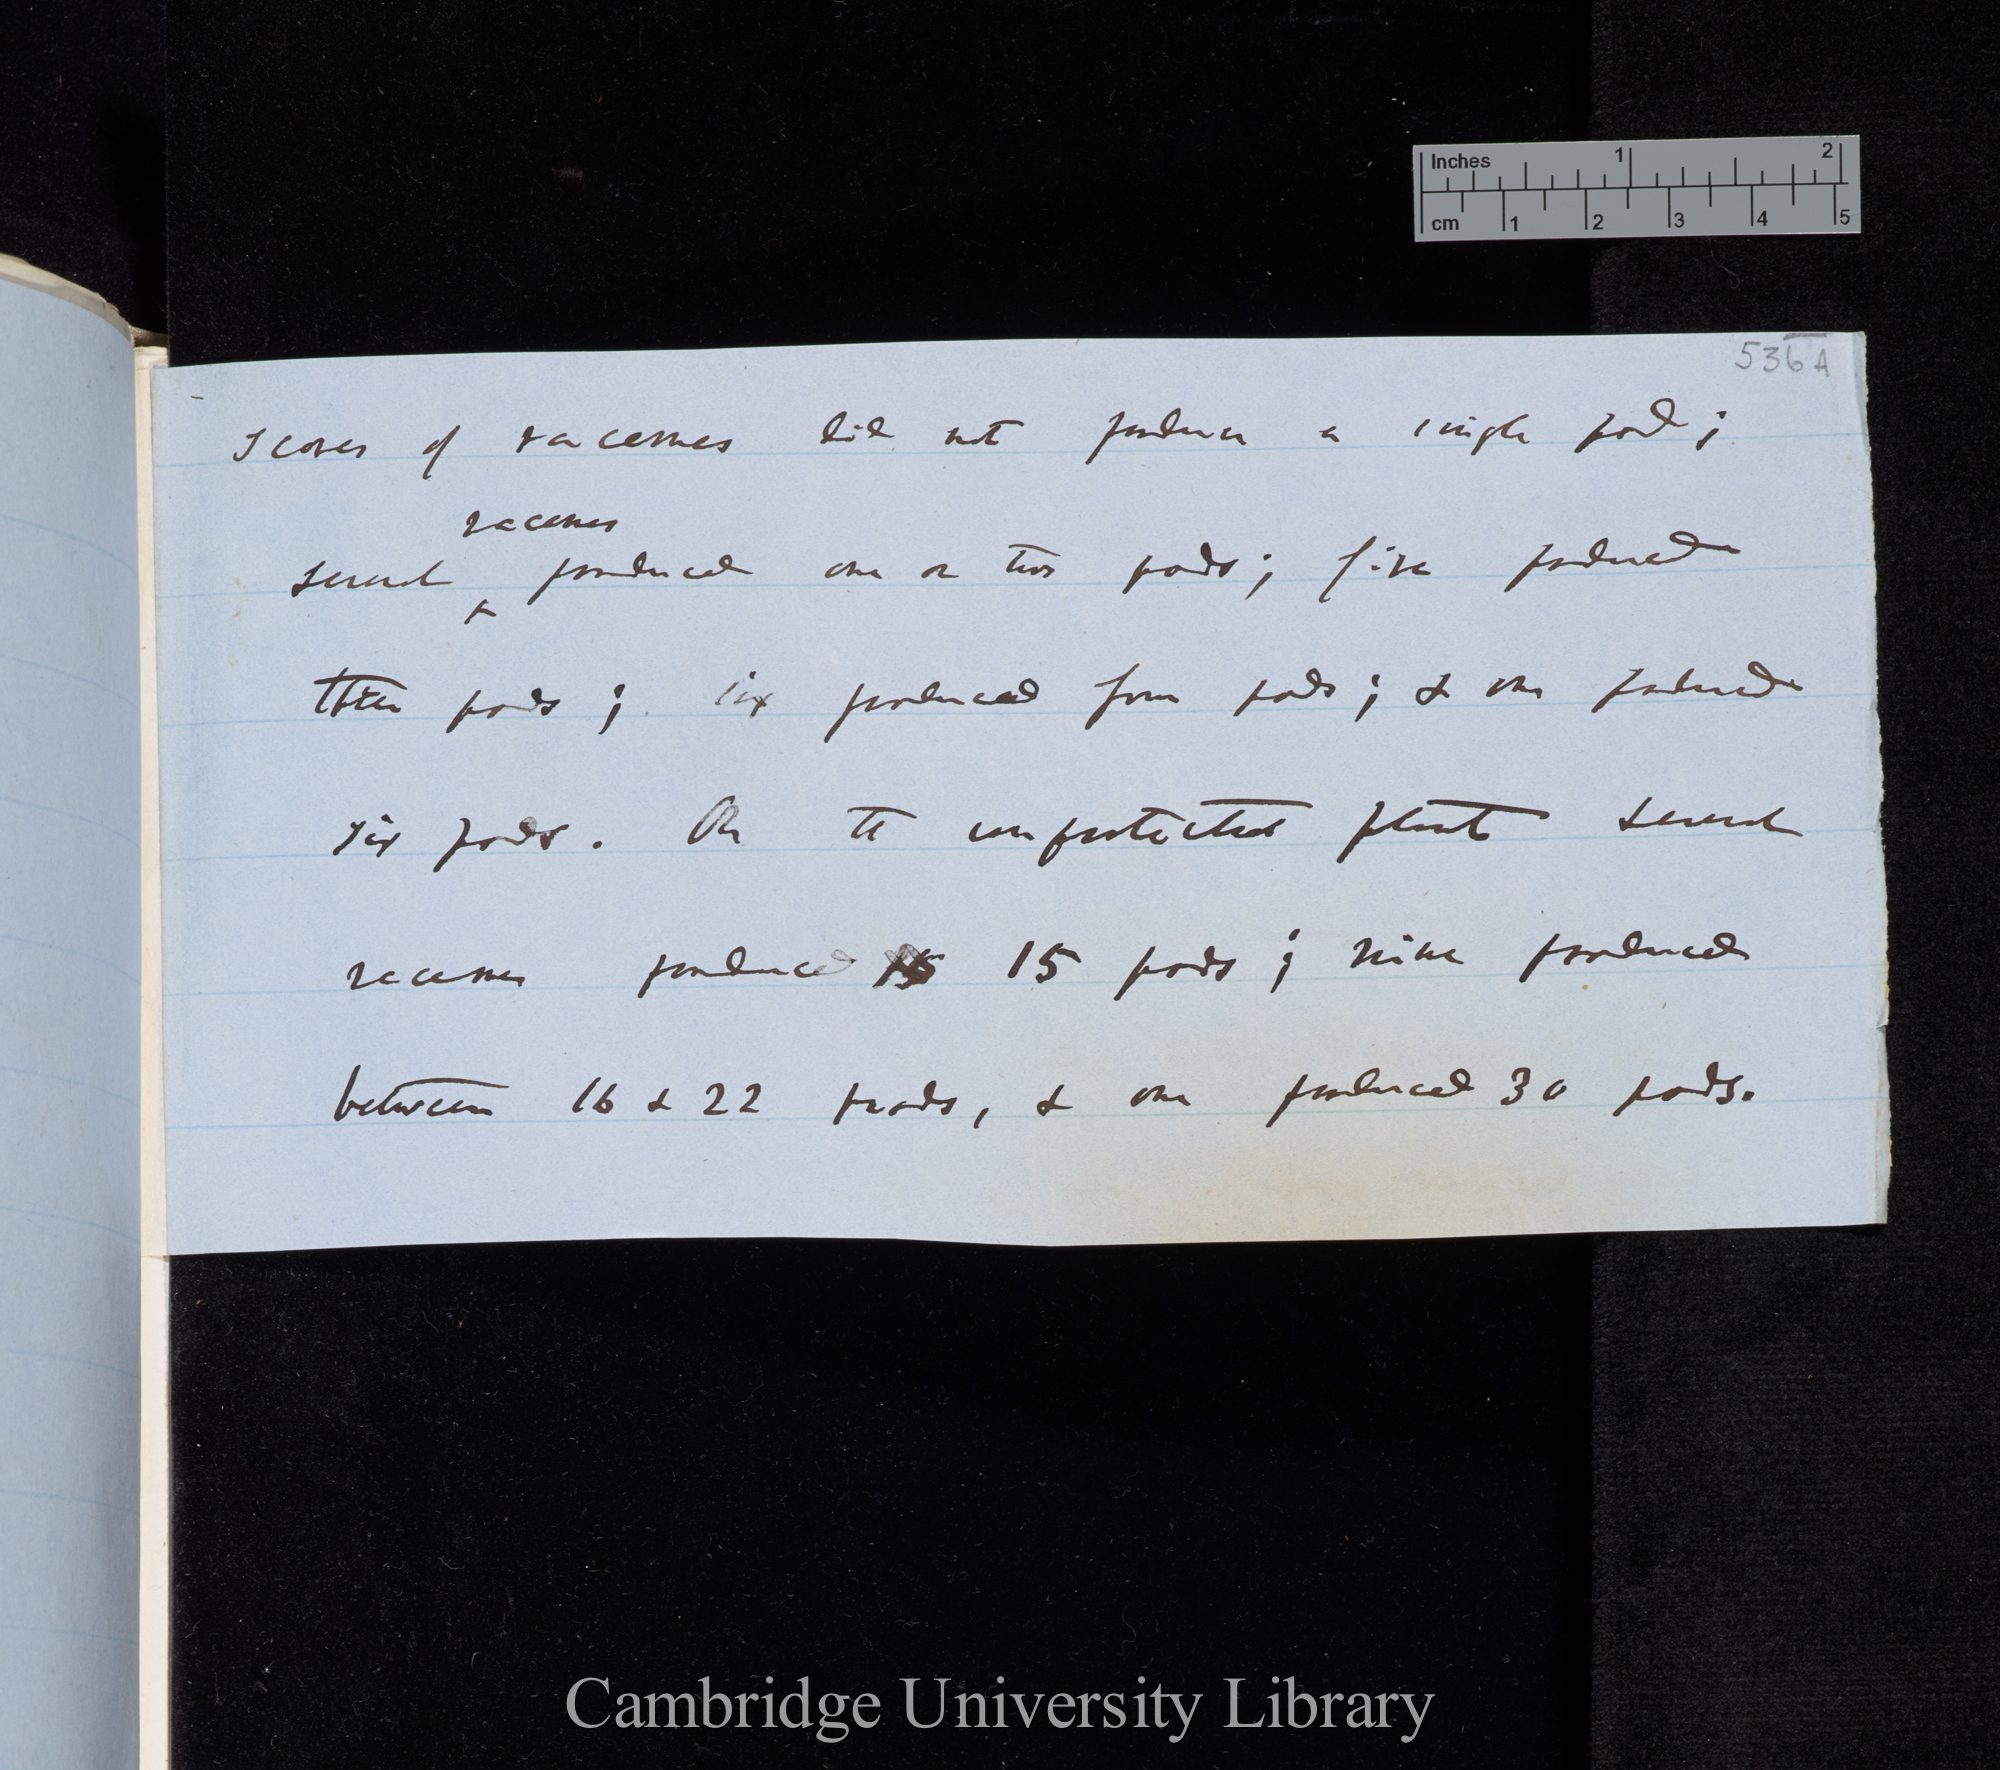 Inches 1 2
cm 1 2 3 4 5
536A
scores of racemes did not produce a single pod;
racemes
several ^ produced one or two pods; five produced
three pods; six produced four pods; & one produced
six pods. On the unprotected plants several
racemes produced 15 15 pods; nine produced
between 16 & 22 pods, & one produced 30 pods.
Cambridge University Library